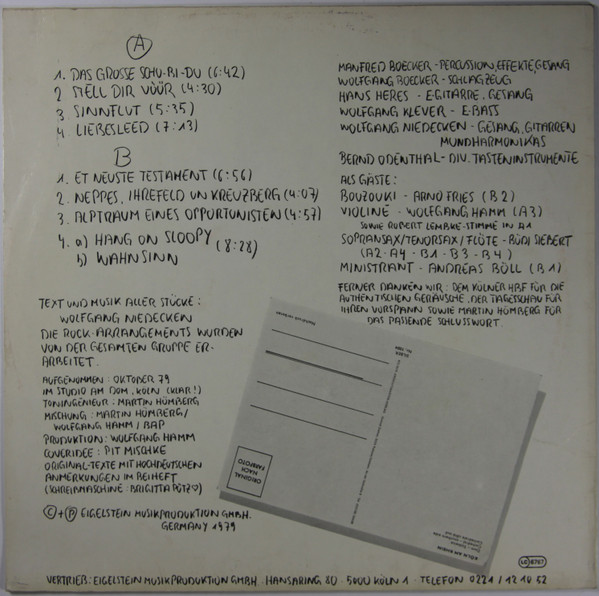 A
1. DAS GROSSE SCHU-BI-DU (6:42)
2 STELL DIR VÜÜR (4:30)
3 SINNFLUT (5:35)
4 LIEBESLEED (7:13)
B
1. ET NEUSTE TESTAMENT (6:56)
2. NEPPES, IHREFELD UN KREUZBERG (4:07)
3. ALPTRAUM EINES OPPORTUNISTEN (4:57)
4. a) HANG ON SLOOPY (8:28)
b) WAHNSINN
TEXT UND MUSIK ALLER STÜCKE:
WOLFGANG NIEDECKEN
DIE ROCK-ARRANGEMENTS WURDEN
VON DER GESAMTEN GRUPPE ER-
ARBEITET.
AUFGENOMMEN: OKTOBER 79
IM STUDIO AM DOM, KÖLN (KLAR!)
TONINGENIEUR: MARTIN HÖMBERG
MISCHUNG: MARTIN HÖMBERG/
WOLFGANG HAMM / BAP
PRODUKTION: WOLFGANG HAMM
COVERIDEE: PIT MISCHKE
ORIGINAL-TEXTE MIT HOCHDEUTSCHEN
ANMERKUNGEN IM BEIHEFT
(SCHREIBMASCHINE: BRIGITTA PÜTZ)
C+P EIGELSTEIN MUSIKPRODUKTION GMBH.
GERMANY 1979
MANFRED BOECKER - PERCUSSION, EFFEKTE, GESANG
WOLFGANG BOECKER - SCHLAGZEUG
HANS HERES - E-GITARRE, GESANG
WOLFGANG KLEVER - E-BASS
WOLFGANG NIEDECKEN - GESANG, GITARREN
MUNDHARMONIKAS
BERND ODENTHAL - DIV. TASTENINSTRUMENTE
ALS GÄSTE:
BOUZOUKI - ARNO FRIES (B2)
VIOLINE - WOLFGANG HAMM (A3)
SOWIE ROBERT LEMBKE-STIMME IN A1
SOPRANSAX/TENORSAX/FLÖTE - BÜDI SIEBERT
(A2 · A4 - B1 - B3 - B4)
MINISTRANT - ANDREAS BÖLL (B1)
FERNER DANKEN WIR: DEM KÖLNER HBF FÜR DIE
AUTHENTISCHEN GERÄUSCHE, DER TAGESSCHAU FÜR
IHREN VORSPANN SOWIE MARTIN HÖMBERG FÜR
DAS PASSENDE SCHLUSSWORT.
ORIGINAL
NACH
FARBFOTO
KÖLN AM RHEIN
LC 8767
VERTRIEB: EIGELSTEIN MUSIKPRODUKTION GMBH. HANSARING 80 - 5000 KÖLN 1 - TELEFON 0221 / 12 10 52